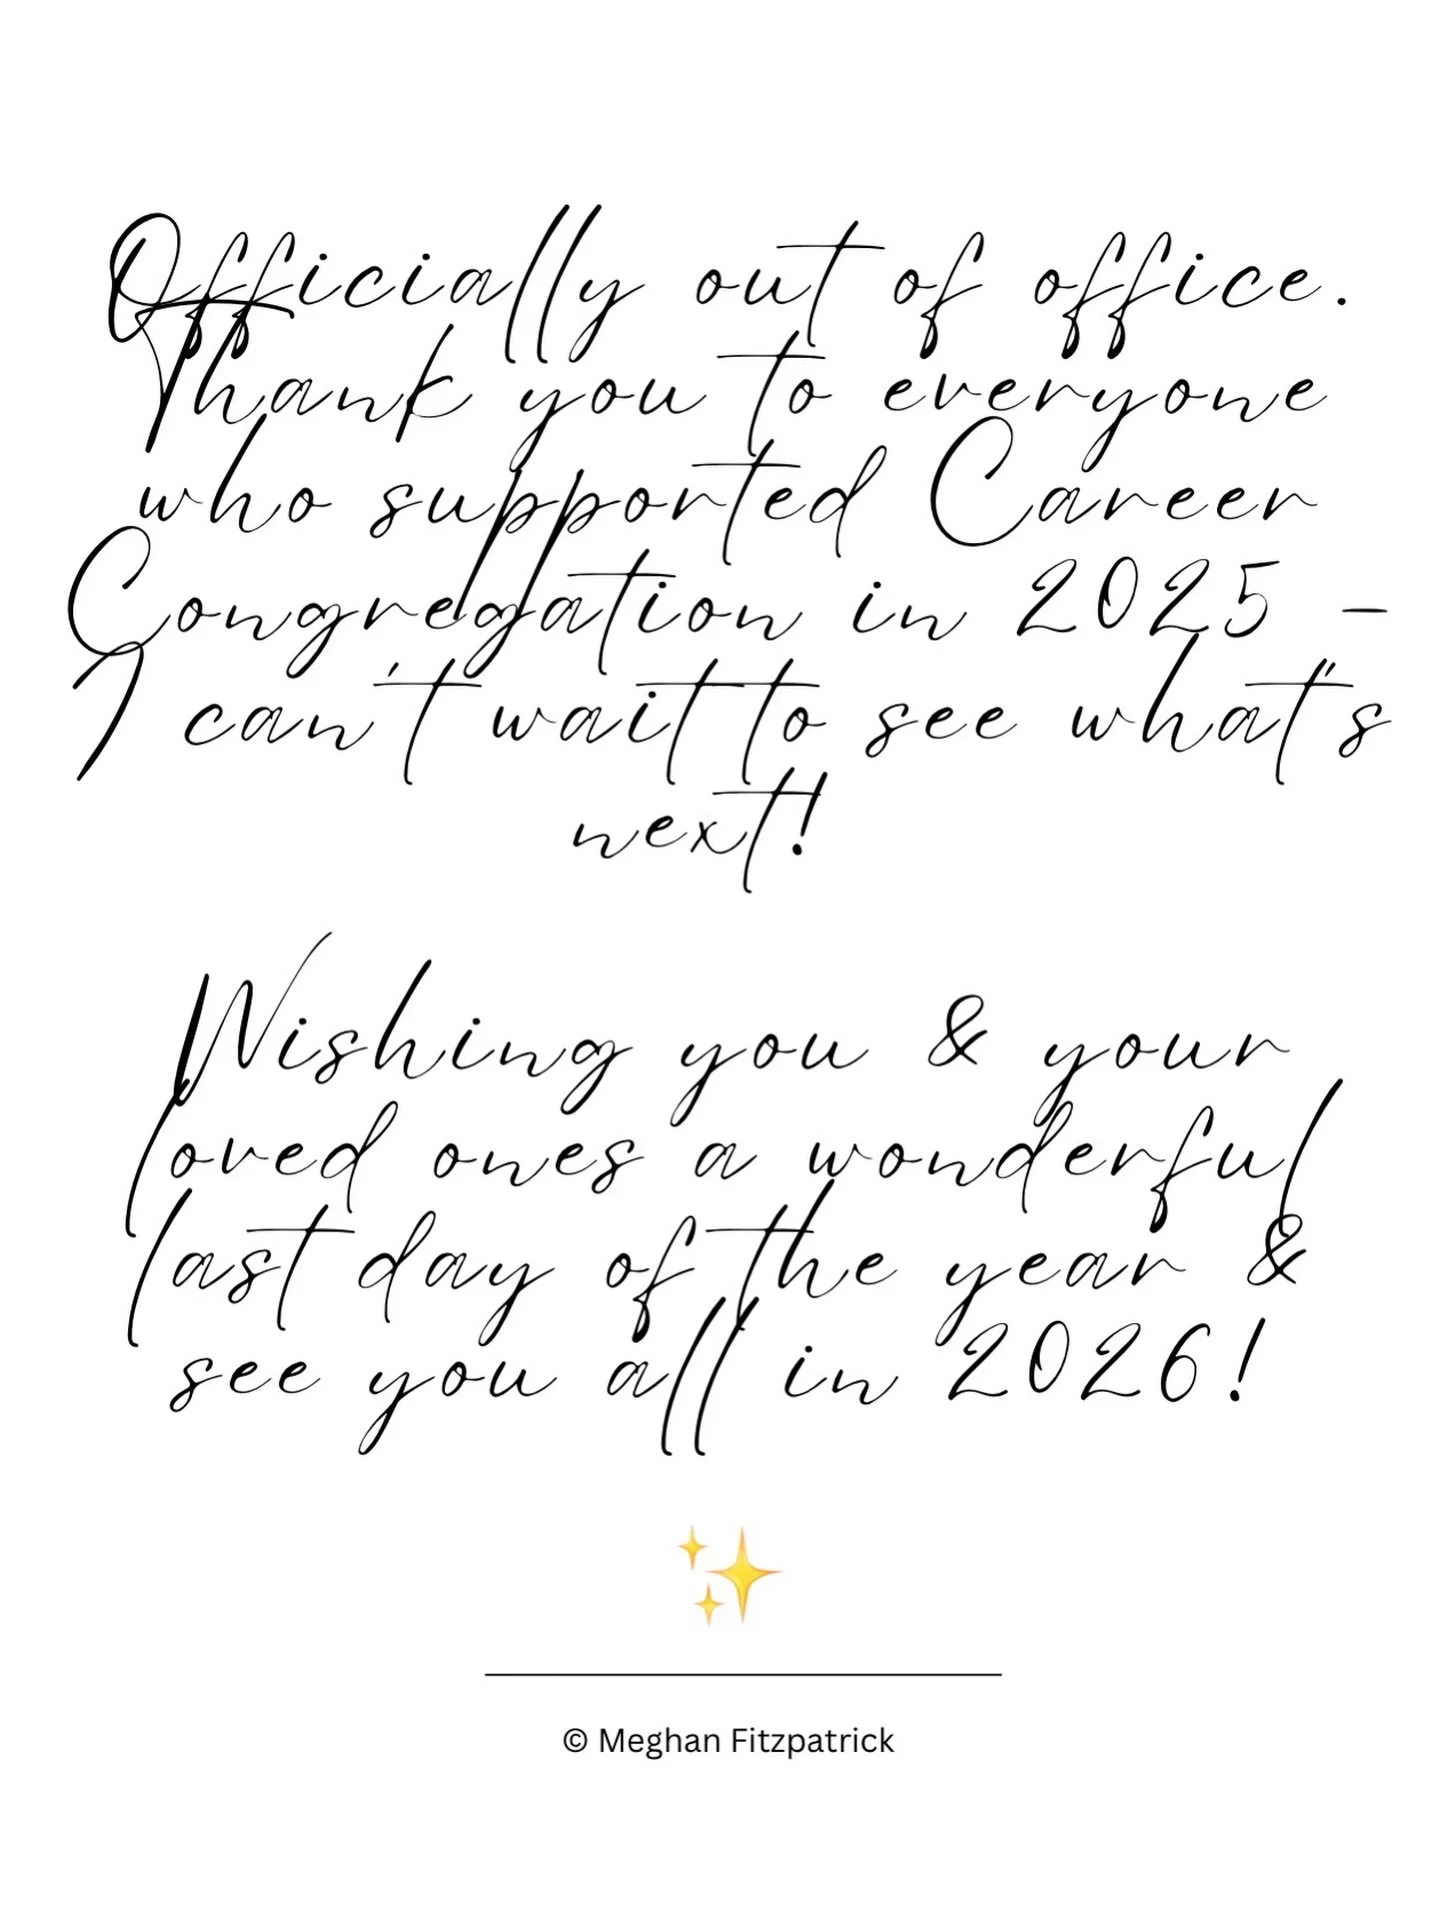 Officially out of office.
Thank you to everyone
who supported Career
Congregation in 2025 -
I can't wait to see what's
next!
Wishing you & your
loved ones a wonderful
last day of the year &
see you all in 2026!
✨
© Meghan Fitzpatrick